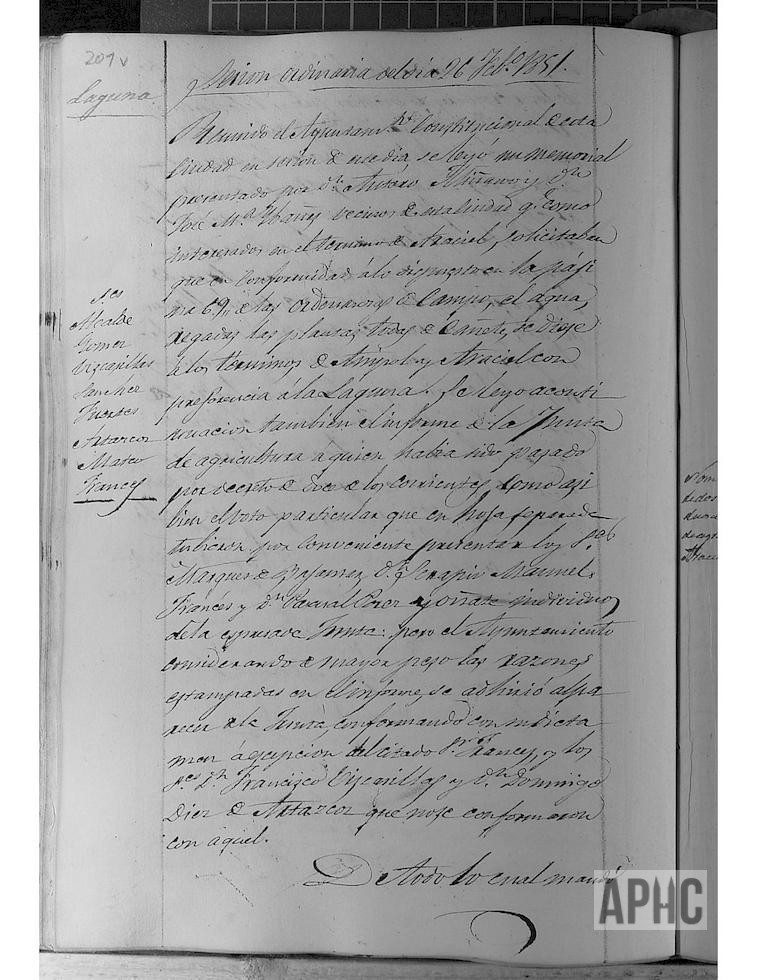 201 v
Laguna
Sesion ordinaria del dia 26 Feb.º 1851.
Reunido el Ayuntam.to Constitucional de esta
Ciudad en sesion de este dia, se leyó un memorial
presentado por D.n Antero Miñano y D.n
José M.a Ybañez vecinos de esta Ciudad q.e como
interesados en el termino de Araciel, solicitaban
que en conformidad á lo dispuesto en la pági
na 69 de las ordenanzas de Campo, el agua,
regadas las plantas todas de Cañete, se diese
a los términos de Ampol y Araciel con
preferencia á la Laguna. Se leyo a conti
nuacion tambien el informe de la Junta
de agricultura á quien habia sido pasado
por decreto de doce de los corrientes, como asi
bien el voto particular que en hoja separada
tubieron por conveniente presentar los S.res
Marques de Bajamar, D.n Serapio Manuel
Francés y D.n Pascual Perez y oñate individuos
de la espresada Junta: pero el Ayuntamiento
considerando de mayor peso las razones
estampadas en el informe, se adhirió al pa
recer de la Junta, conformando con su dicta
men á escepcion del citado S.or Francés, y los
S.res D.n Francisco Vizcarillas y D.n Domingo
Diez de Artazcoz que no se conformaron
con aquel.
De todo lo cual mandó
S.res
Alcalde
Gomez
Vizcarillas
Sanchez
Fuertes
Artazcoz
Mateo
Francés
APHC